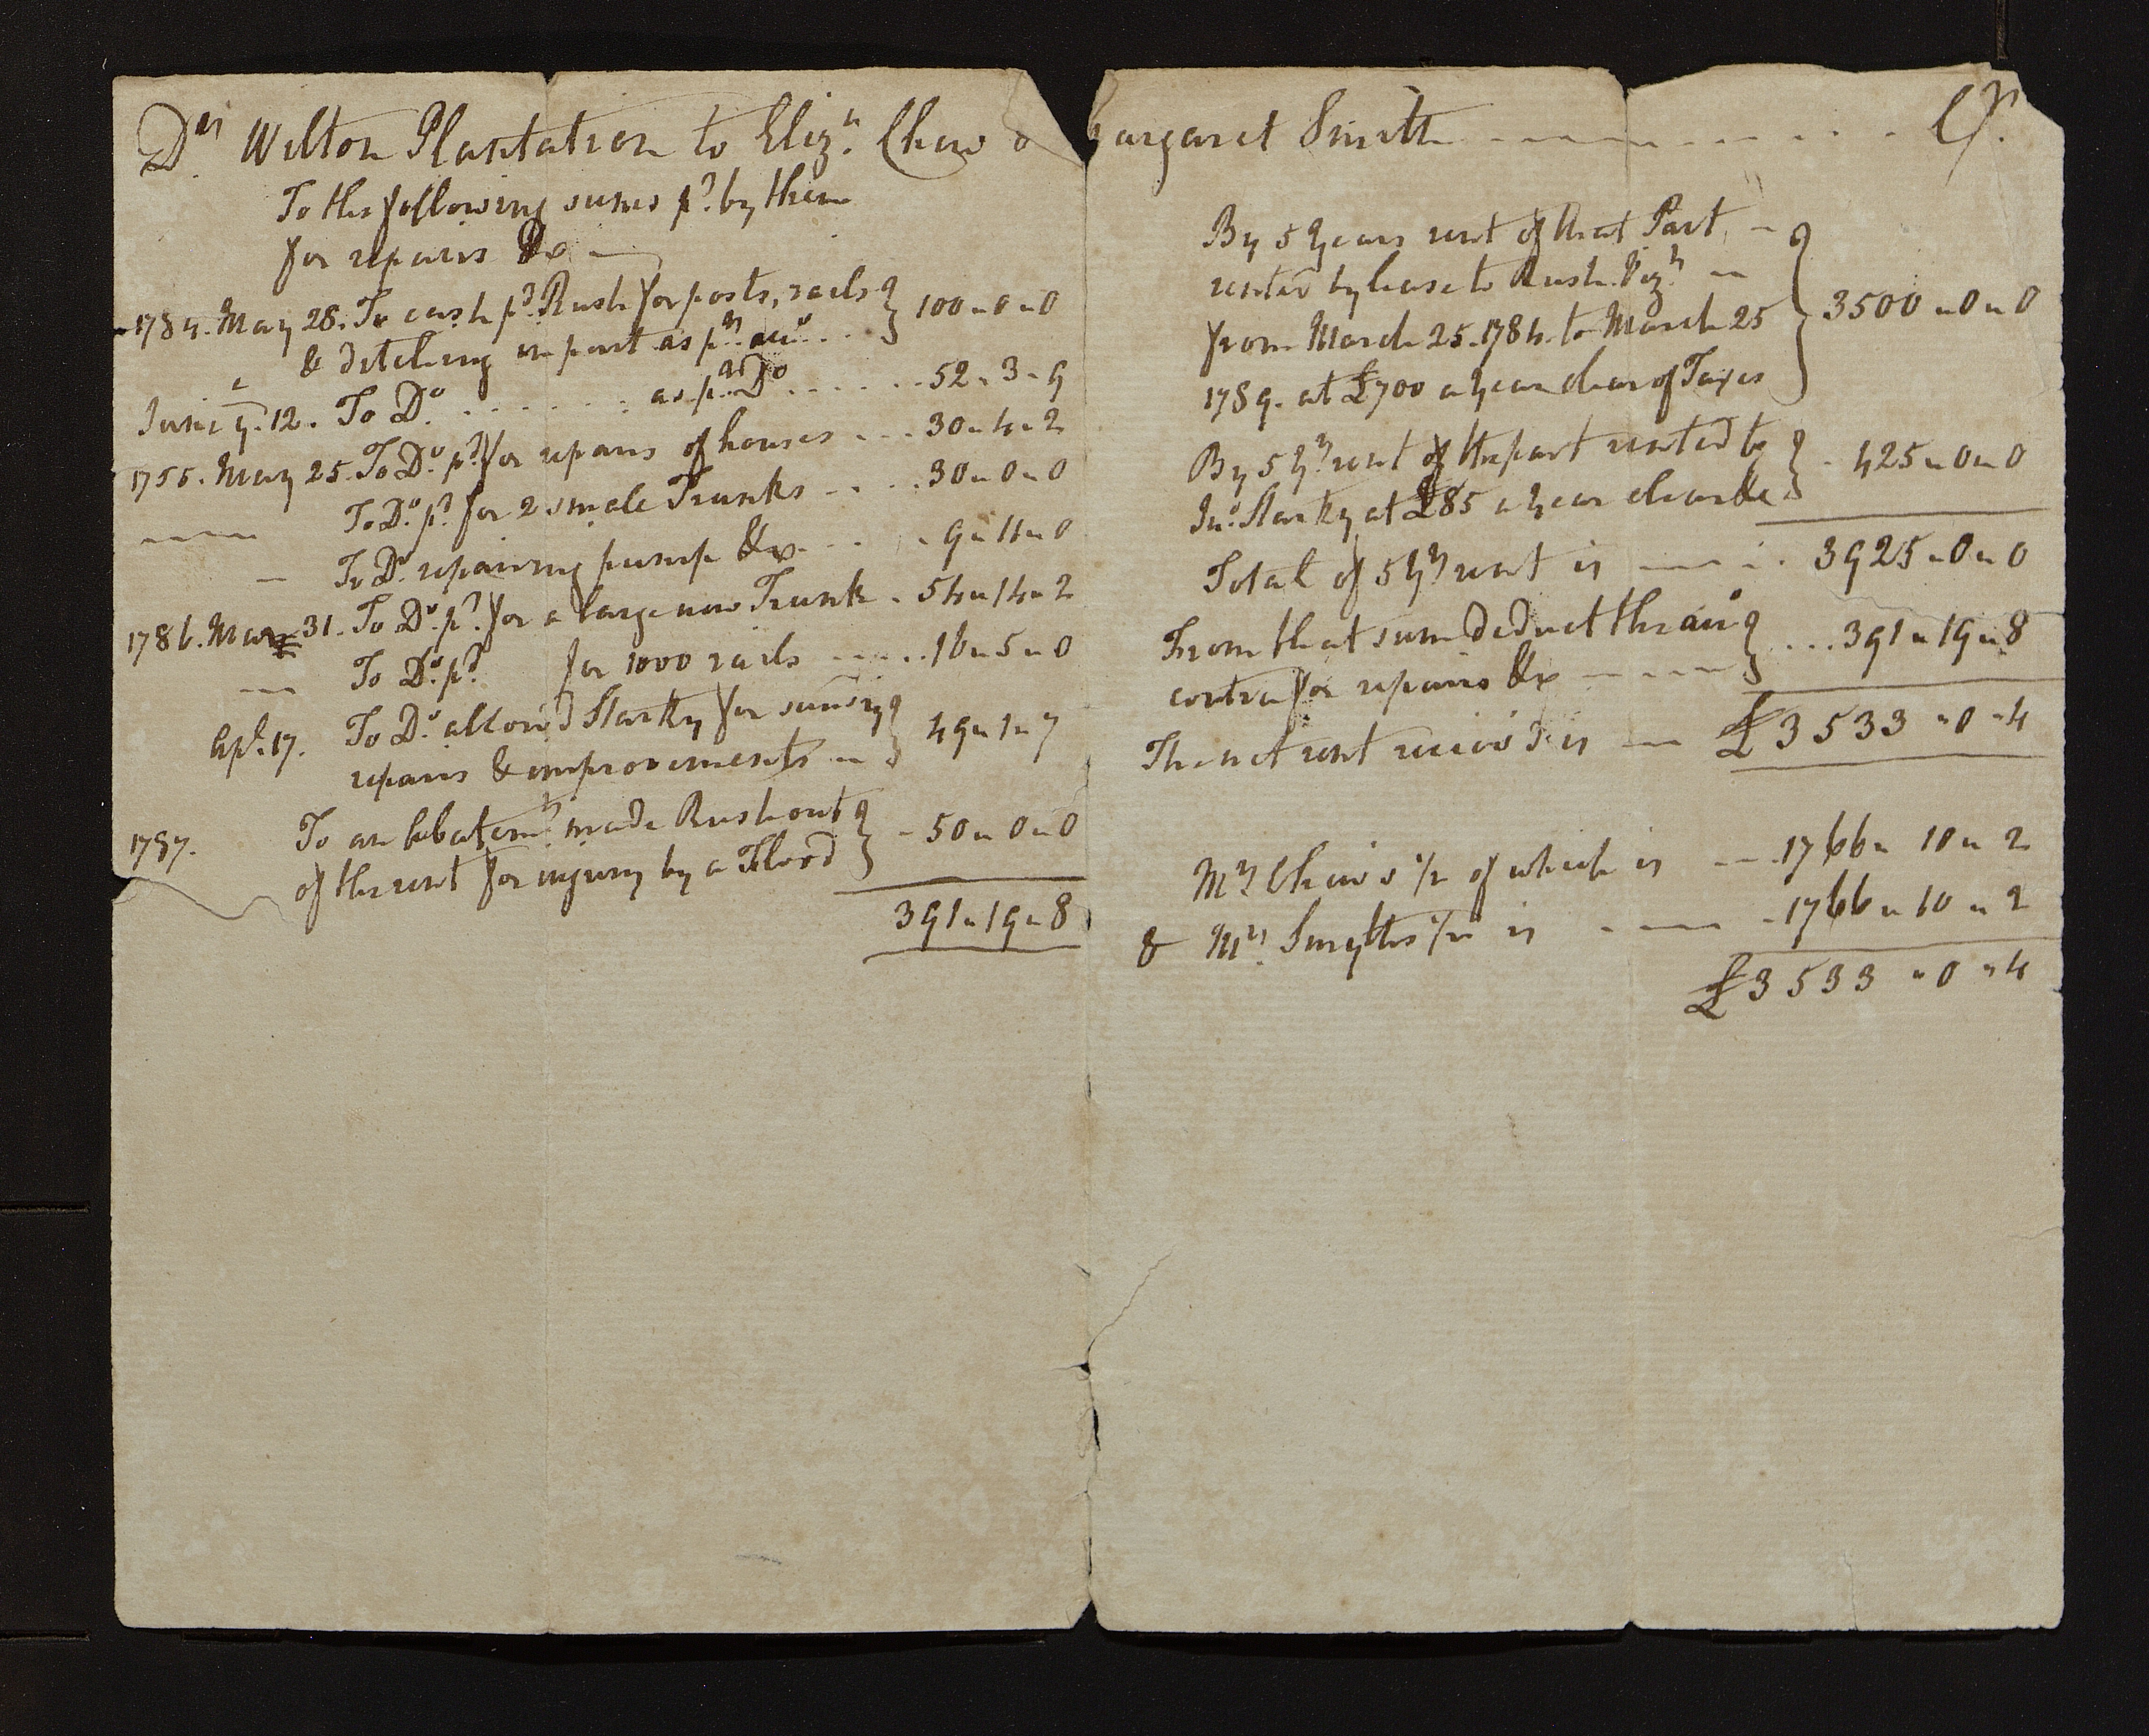 Drs Wilton Plantation to Elizh. Chew & Margaret Smith Cr.
To the following sums pd. by them
for repairs &c
1784. May 28. To cash pd. Rush for posts, rails
& ditching in part as pr. acco. 100 „ 0 „ 0
June 12. To Do. as pr. Do 52 „ 3 „ 9
1785. May 25. To Do. pd. for repairs of houses 30 „ 4 „ 2
To Do. pd. for 2 smale Trunks 30 „ 0 „ 0
To Do. repairing pump &c 9 „ 11 „ 0
1786. Mar 31. To Do. pd. for a large new Trunk 54 „ 14 „ 2
To Do. pd. for 1000 rails 16 „ 5 „ 0
Apl. 17. To Do. allow'd Starky for sundry
repairs & improvements 49 „ 1 „ 7
1787. To an Abatemt. made Rush out
of the rent for injury by a Flood 50 „ 0 „ 0
391 „ 19 „ 8
By 5 Years rent of that Part
rented by lease to Rush
from March 25. 1784. to March 25
1789. at £700 a year clear of Taxes 3500 „ 0 „ 0
By 5 yrs rent of the part rented to
Jno. Starky at £85 a year clear &c 425 „ 0 „ 0
Total of 5 yrs rent is 3925 „ 0 „ 0
From that sum deduct the acco
contra for repairs &c 391 „ 19 „ 8
The net rent receiv'd is £3533 „ 0 „ 4
Mrs Chew's ½ of which is 1766 „ 10 „ 2
& Mrs. Smyths ½ is 1766 „ 10 „ 2
£3533 „ 0 „ 4